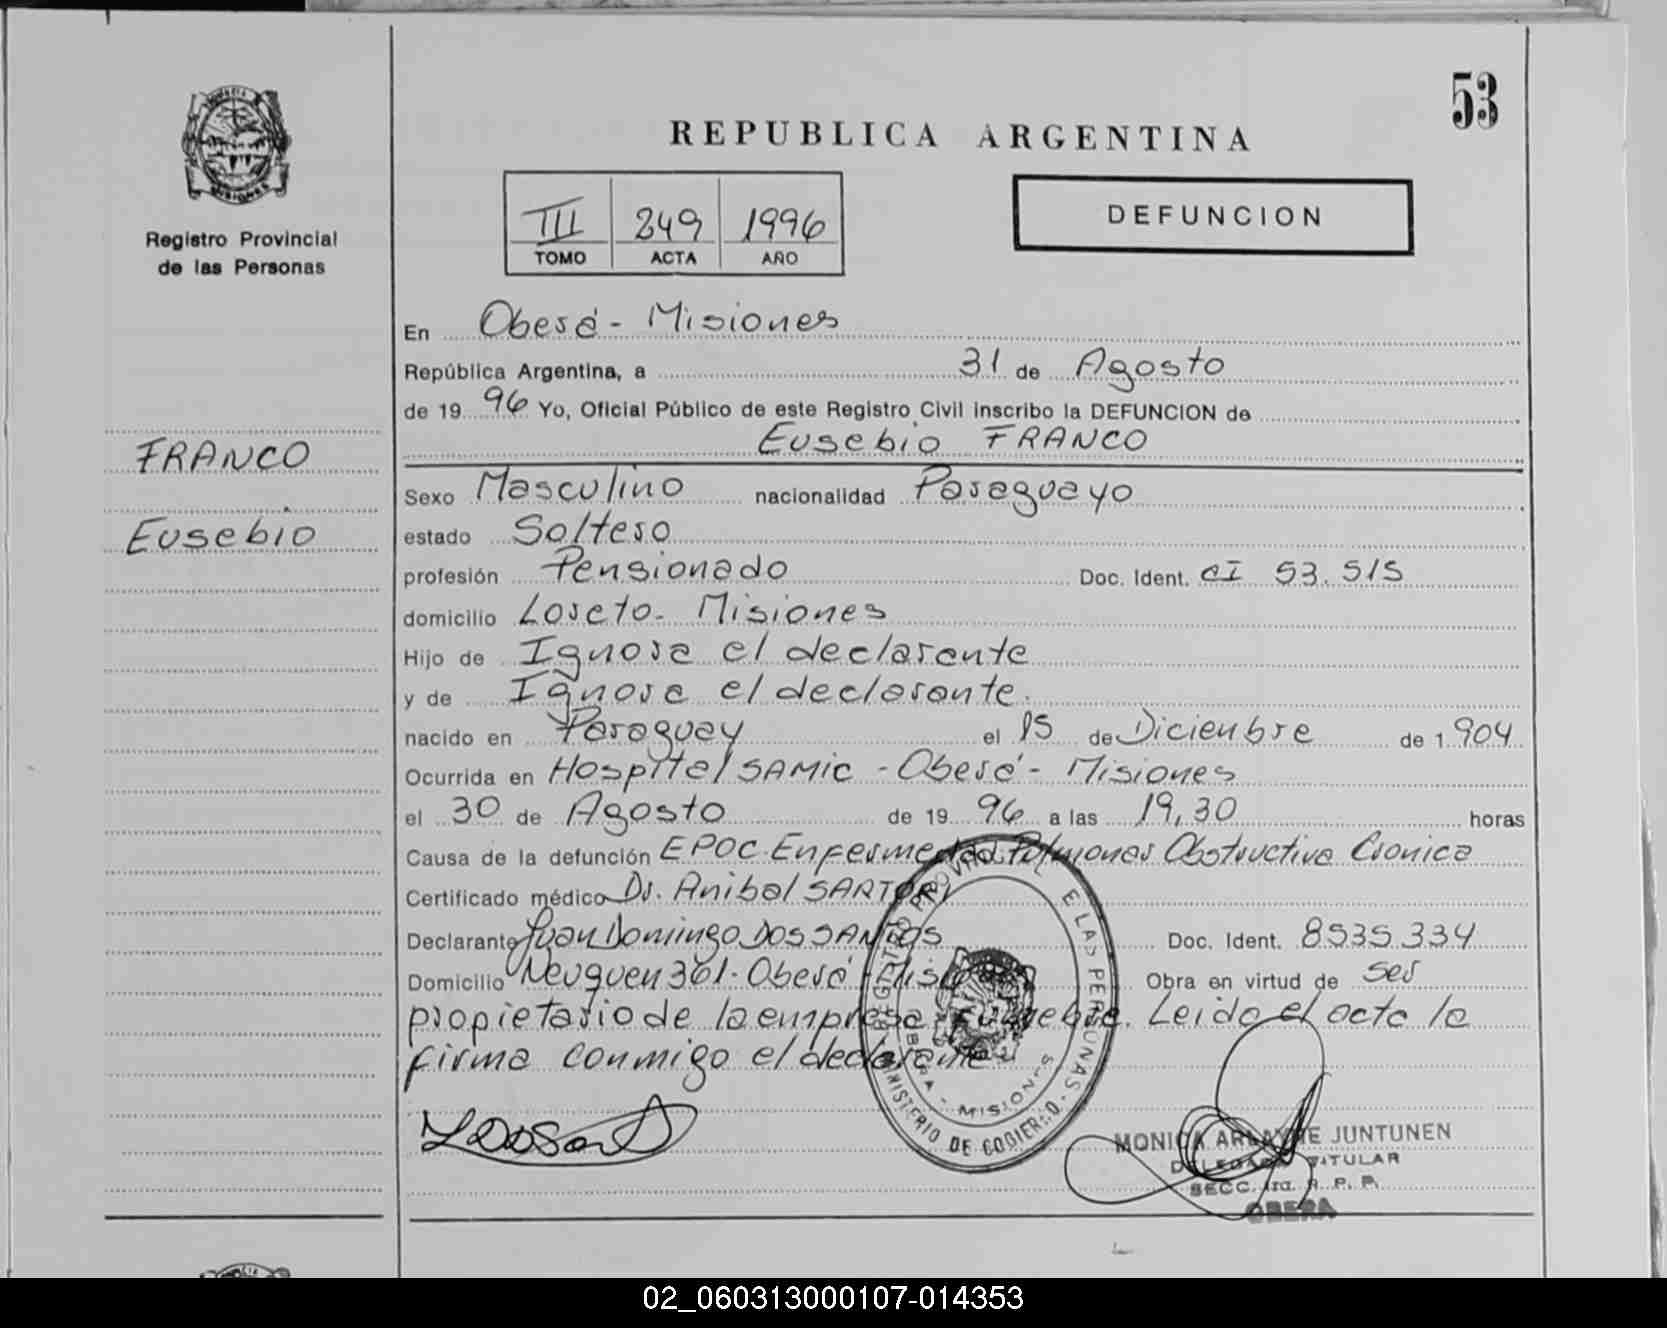 53
REPUBLICA ARGENTINA
III 249 1996
TOMO ACTA AÑO
DEFUNCION
Registro Provincial
de las Personas
FRANCO
Eusebio
En Oberá - Misiones
República Argentina, a 31 de Agosto
de 19 96 Yo, Oficial Público de este Registro Civil inscribo la DEFUNCION de
Eusebio FRANCO
Sexo Masculino nacionalidad Paraguayo
estado Soltero
profesión Pensionado Doc. Ident. CI 53.515
domicilio Loreto - Misiones
Hijo de Ignora el declarante
y de Ignora el declarante.
nacido en Paraguay el 15 de Diciembre de 1.904
Ocurrida en Hospital SAMIC - Oberá - Misiones
el 30 de Agosto de 19 96 a las 19,30 horas
Causa de la defunción EPOC. Enfermedad Pulmonar Obstructiva Cronica
Certificado médico Dr. Anibal SARTORI
Declarante Juan Domingo DOS SANTOS Doc. Ident. 8535334
Domicilio Neuquen 361 - Oberá - Misiones Obra en virtud de ser
propietario de la empresa funebre. Leido el acta la
firma conmigo el declarante
REGISTRO PROVINCIAL DE LAS PERSONAS
OBERA - MISIONES
MINISTERIO DE GOBIERNO
MONICA JUNTUNEN
DELEGADA TITULAR
SECC. 1ra. R. P. P.
OBERA
02_060313000107-014353